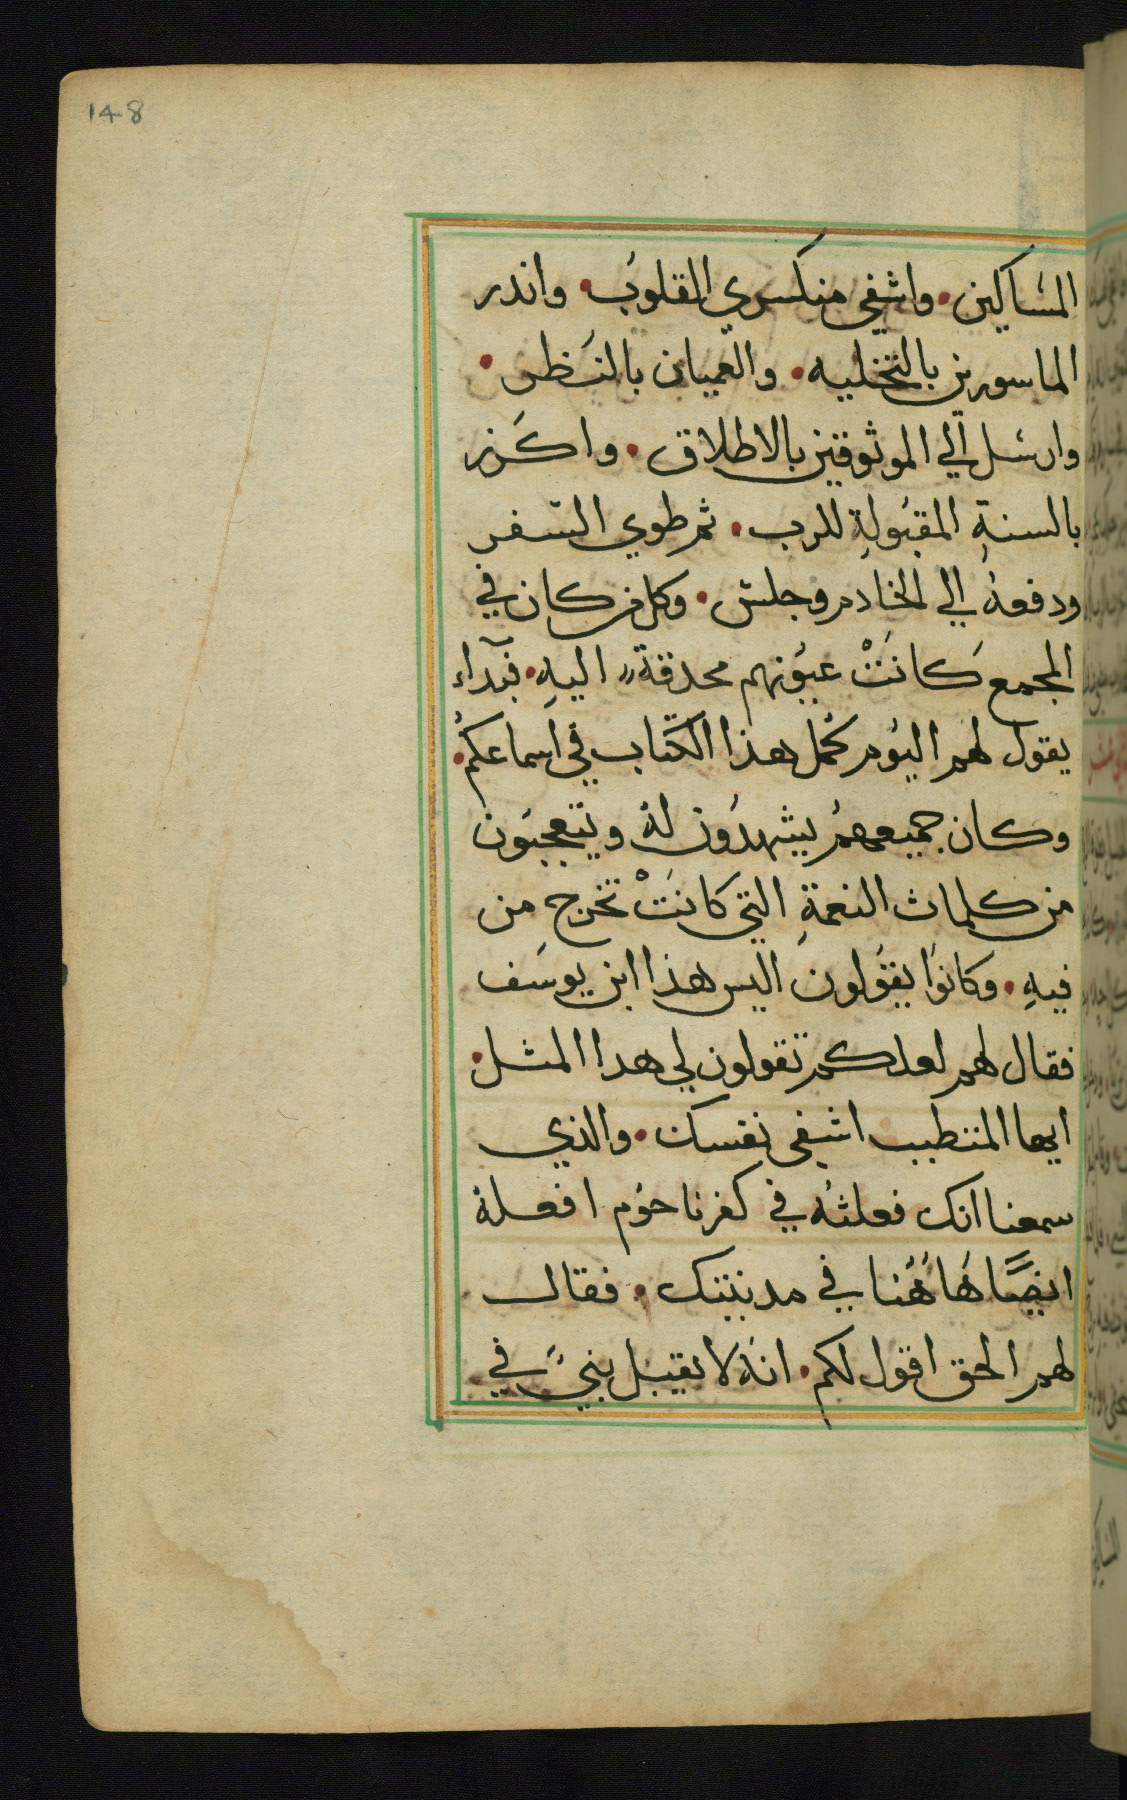 148
المساكين • واشفي منكسري القلوب • واندر
الماسورين بالتخليه • والعميان بالنظر •
وارسل الي الموثوقين بالاطلاق • واكرز
بالسنةِ المقبُولةِ للرب • ثم طوي السفر
ودفعهُ الي الخادم وجلس • وكل من كان في
المجمع كَانَتْ عيُونهم محدقة اليهِ • فبدآء
يقول لهم اليوُم كُمل هذا الكتاب في اسماعكمُ •
وكان جميعهمُ يشهدُون لهُ ويتعجبُون
من كلمات النعمةِ التي كانَتْ تخرج من
فيهِ • وكانوُا يقوُلونَ اليس هذا ابن يوسَف
فقال لهم لعلكم تقولون لي هدا المثل •
ايها المتطبب اشفي نفسك • والذي
سمعنا انك فعلتهُ في كفرناحوُم افعلهُ
ايضًا هَاهُنا في مدينتك • فقال
لهم الحق اقول لكم • انهُ لا يقبل نبيٌ في